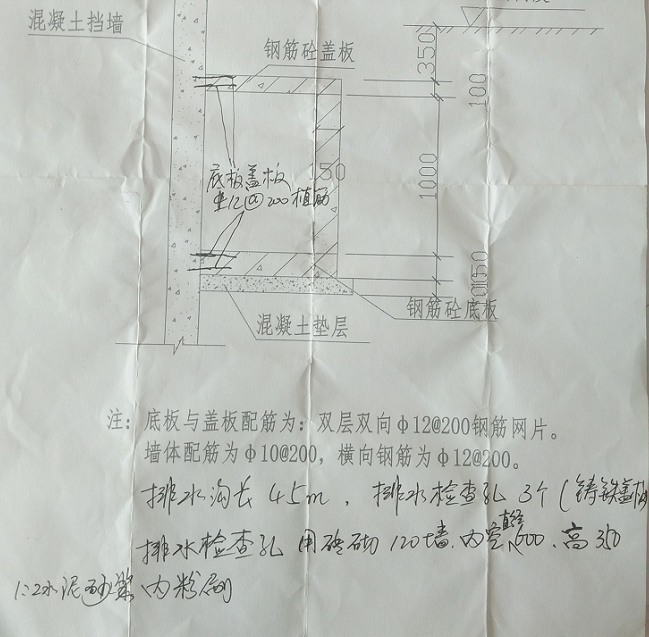 混凝土挡墙
钢筋砼盖板
350
100
底板盖板
150
1000
Φ12@200植筋
钢筋砼底板
混凝土垫层
注：底板与盖板配筋为：双层双向Φ12@200钢筋网片。
墙体配筋为Φ10@200，横向钢筋为Φ12@200。
排水沟长45m，排水检查孔3个（铸铁盖板
排水检查孔用砖砌120墙、内空直径600、高350
1:2水泥砂浆内粉刷